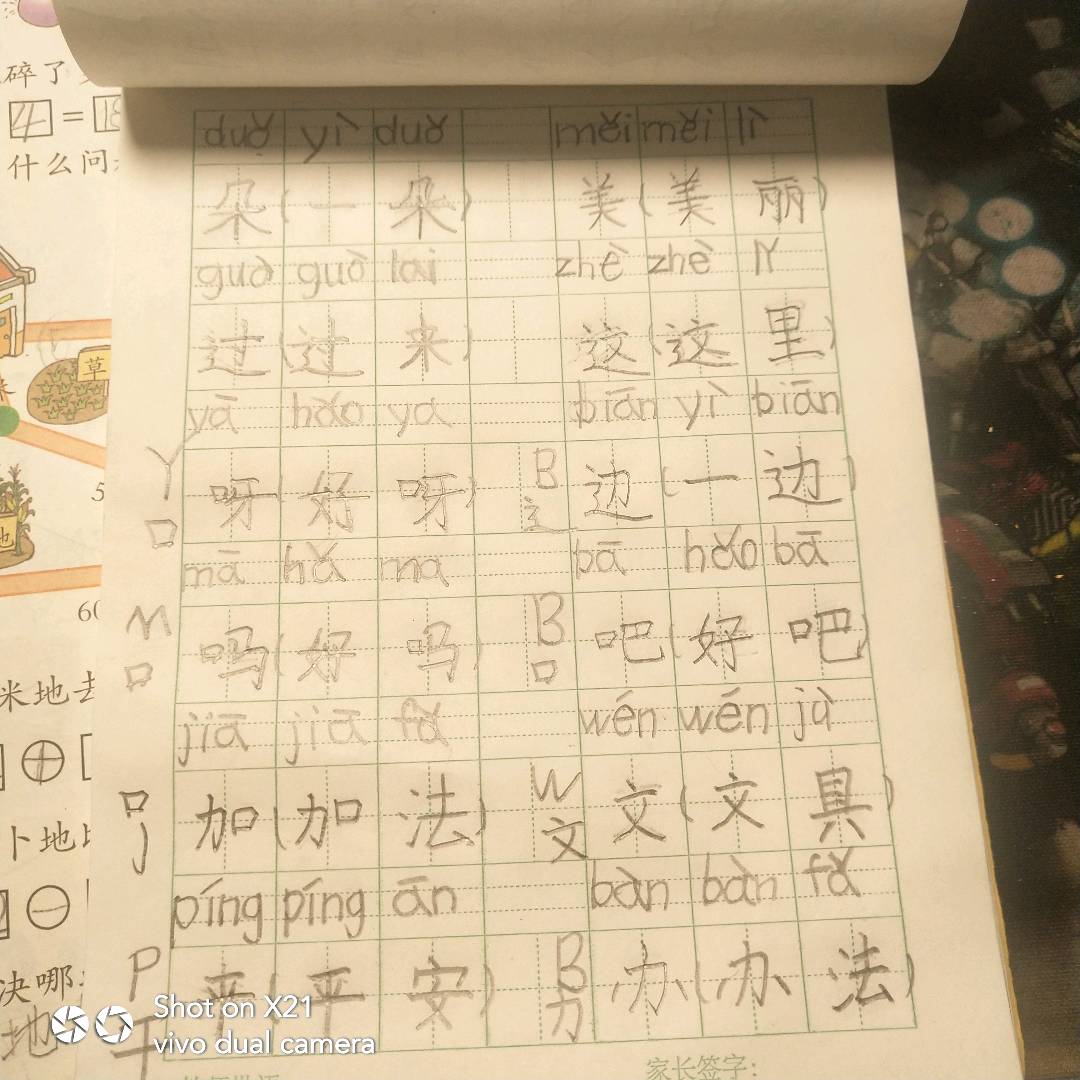 碎了
4 = 18
什么问
草
duǒ yì duǒ měi měi lì
朵(一朵) 美(美丽)
guò guò lai zhè zhè lǐ
过(过来) 这(这里)
yā hǎo ya biān yì biān
Y 口 呀(好呀) B 辶 边(一边)
mā hǎ ma bā hǎo bā
M 口 吗(好吗) B 口 吧(好吧)
60
米地去
jiā jiā fǎ wén wén jù
口 J 加(加法) W 文 文(文具)
卜地
píng píng ān bàn bàn fǎ
P 干 平(平安) B 力 办(办法)
决哪
地
Shot on X21
vivo dual camera
家长签字: